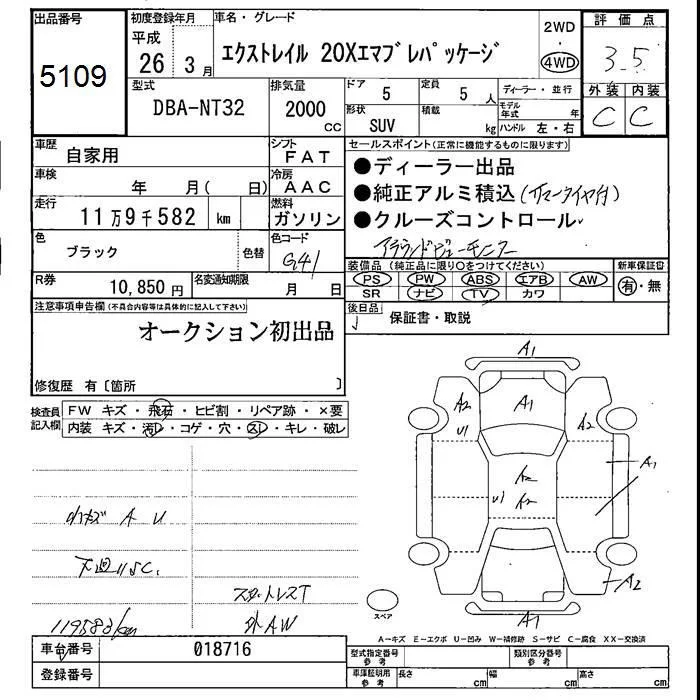 出品番号 初度登録年月 車名・グレード 2WD ・ 4WD 評価点
5109 平成 26 3月 エクストレイル 20Xエマブレパッケージ 3.5
外装 内装
C C
型式 排気量 ドア 5 定員 5人 ディーラー・並行
DBA-NT32 2000 cc 形状 SUV 積載 kg モデル年式 年
ハンドル 左・右
車歴 自家用 シフト FAT セールスポイント(正常に機能するものに限ります)
●ディーラー出品
車検 年 月( 日) 冷房 AAC
●純正アルミ積込
走行 11万9千582 km 燃料 ガソリン ●クルーズコントロール
アラウンドビューモニター
色 ブラック 色替 色コード G41
装備品 (純正品に限り○をつけてください) 新車保証書
PS PW ABS エアB AW 有・無
SR ナビ TV カワ
R券 10,850円 名変通知期限 月 日
後日品 保証書・取説
注意事項申告欄(不具合内容等は具体的に記入して下さい)
オークション初出品
修復歴 有〔箇所 〕
検査員記入欄 FW キズ・飛石・ヒビ割・リペア跡・×要
内装 キズ・汚レ・コゲ・穴・スレ・キレ・破レ
A1
A2 A1 A2
U1
A2 A1
U1 A2
A2
A1
小キズ A U
下廻サビC.
スタットレスT
119583km 外AW
スペア
A-キズ E-エクボ U-凹み W-補修跡 S-サビ C-腐食 XX-交換済
車台番号 018716 型式指定番号 参考 類別区分番号 参考
登録番号 車庫証明用 参考 長さ cm 幅 cm 高さ cm